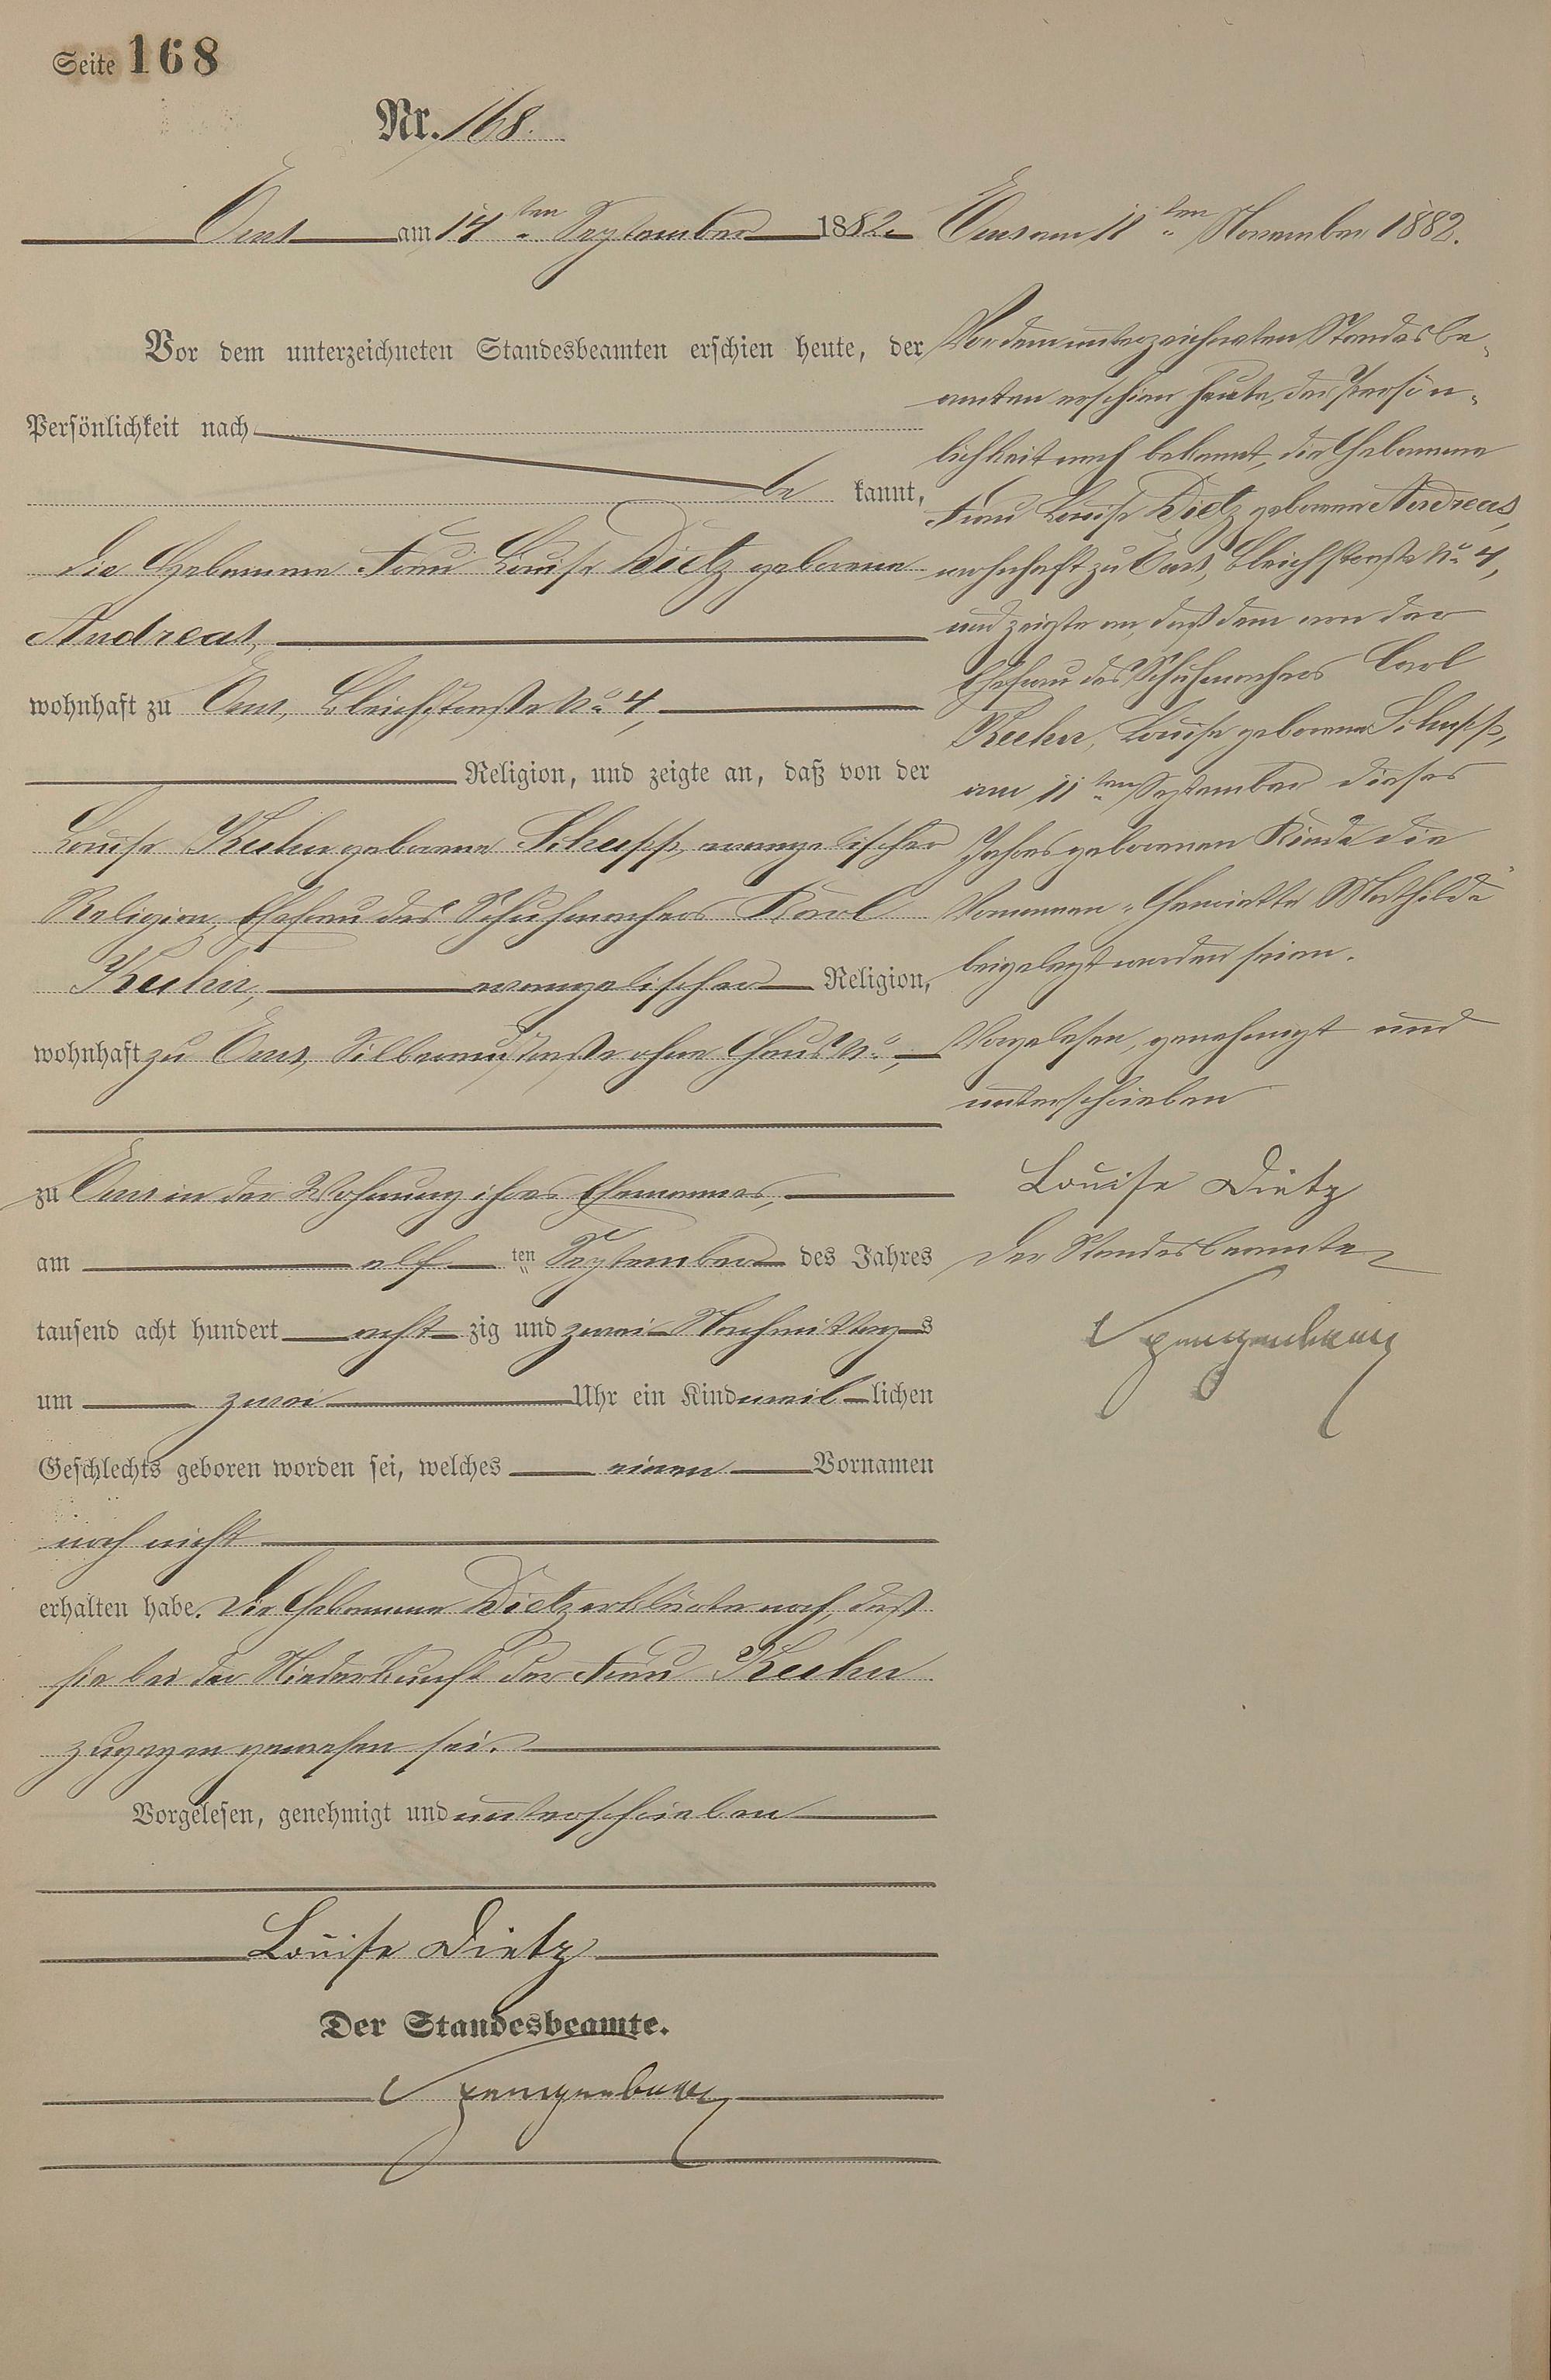 Seite 168
Nr. 168.
Ems am 14ten September 1882.
Vor dem unterzeichneten Standesbeamten erschien heute, der
Persönlichkeit nach
be kannt,
die Hebamme Frau Louise Dietz geborene
Andreas,
wohnhaft zu Ems, Bleichstraße No 4,
Religion, und zeigte an, daß von der
Louise Kuhn geborene Schupp, evangelischer
Religion, Ehefrau des Schuhmachers Karl
Kuhn, evangelischer Religion,
wohnhaft zu Ems, Silberaustraße ohne Haus No,
zu Ems in der Wohnung ihres Ehemannes,
am elf ten September des Jahres
tausend acht hundert acht zig und zwei Nachmittags
um zwei Uhr ein Kind weib lichen
Geschlechts geboren worden sei, welches einen Vornamen
noch nicht
erhalten habe. Die Hebamme Dietz erklärte noch, daß
sie bei der Niederkunft der Frau Kuhn
zugegen gewesen sei.
Vorgelesen, genehmigt und unterschrieben
Louise Dietz
Der Standesbeamte.
Spangenberg
Ems am 11ten November 1882.
Vor dem unterzeichneten Standesbe-
amten erschien heute, der Persön-
lichkeit nach bekannt, die Hebamme
Frau Louise Dietz geborene Andreas,
wohnhaft zu Ems, Bleichstraße No 4,
und zeigte an, daß dem von der
Ehefrau des Schuhmachers Carl
Kuhn, Louise geborene Schupp,
am 11ten September dieses
Jahres geborenen Kinde die
Vornamen „Henriette Mathilde“
beigelegt worden seien.
Vorgelesen, genehmigt und
unterschrieben
Louise Dietz
Der Standesbeamte
Spangenberg